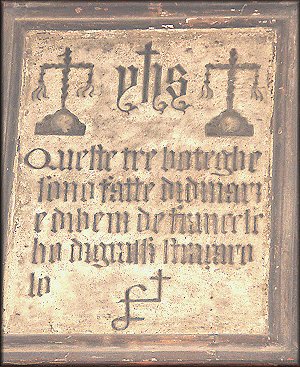 yhs
Queste tre boteghe
sono fatte di dinari
e di beni de francesc
ho dagrassi strazaro
lo